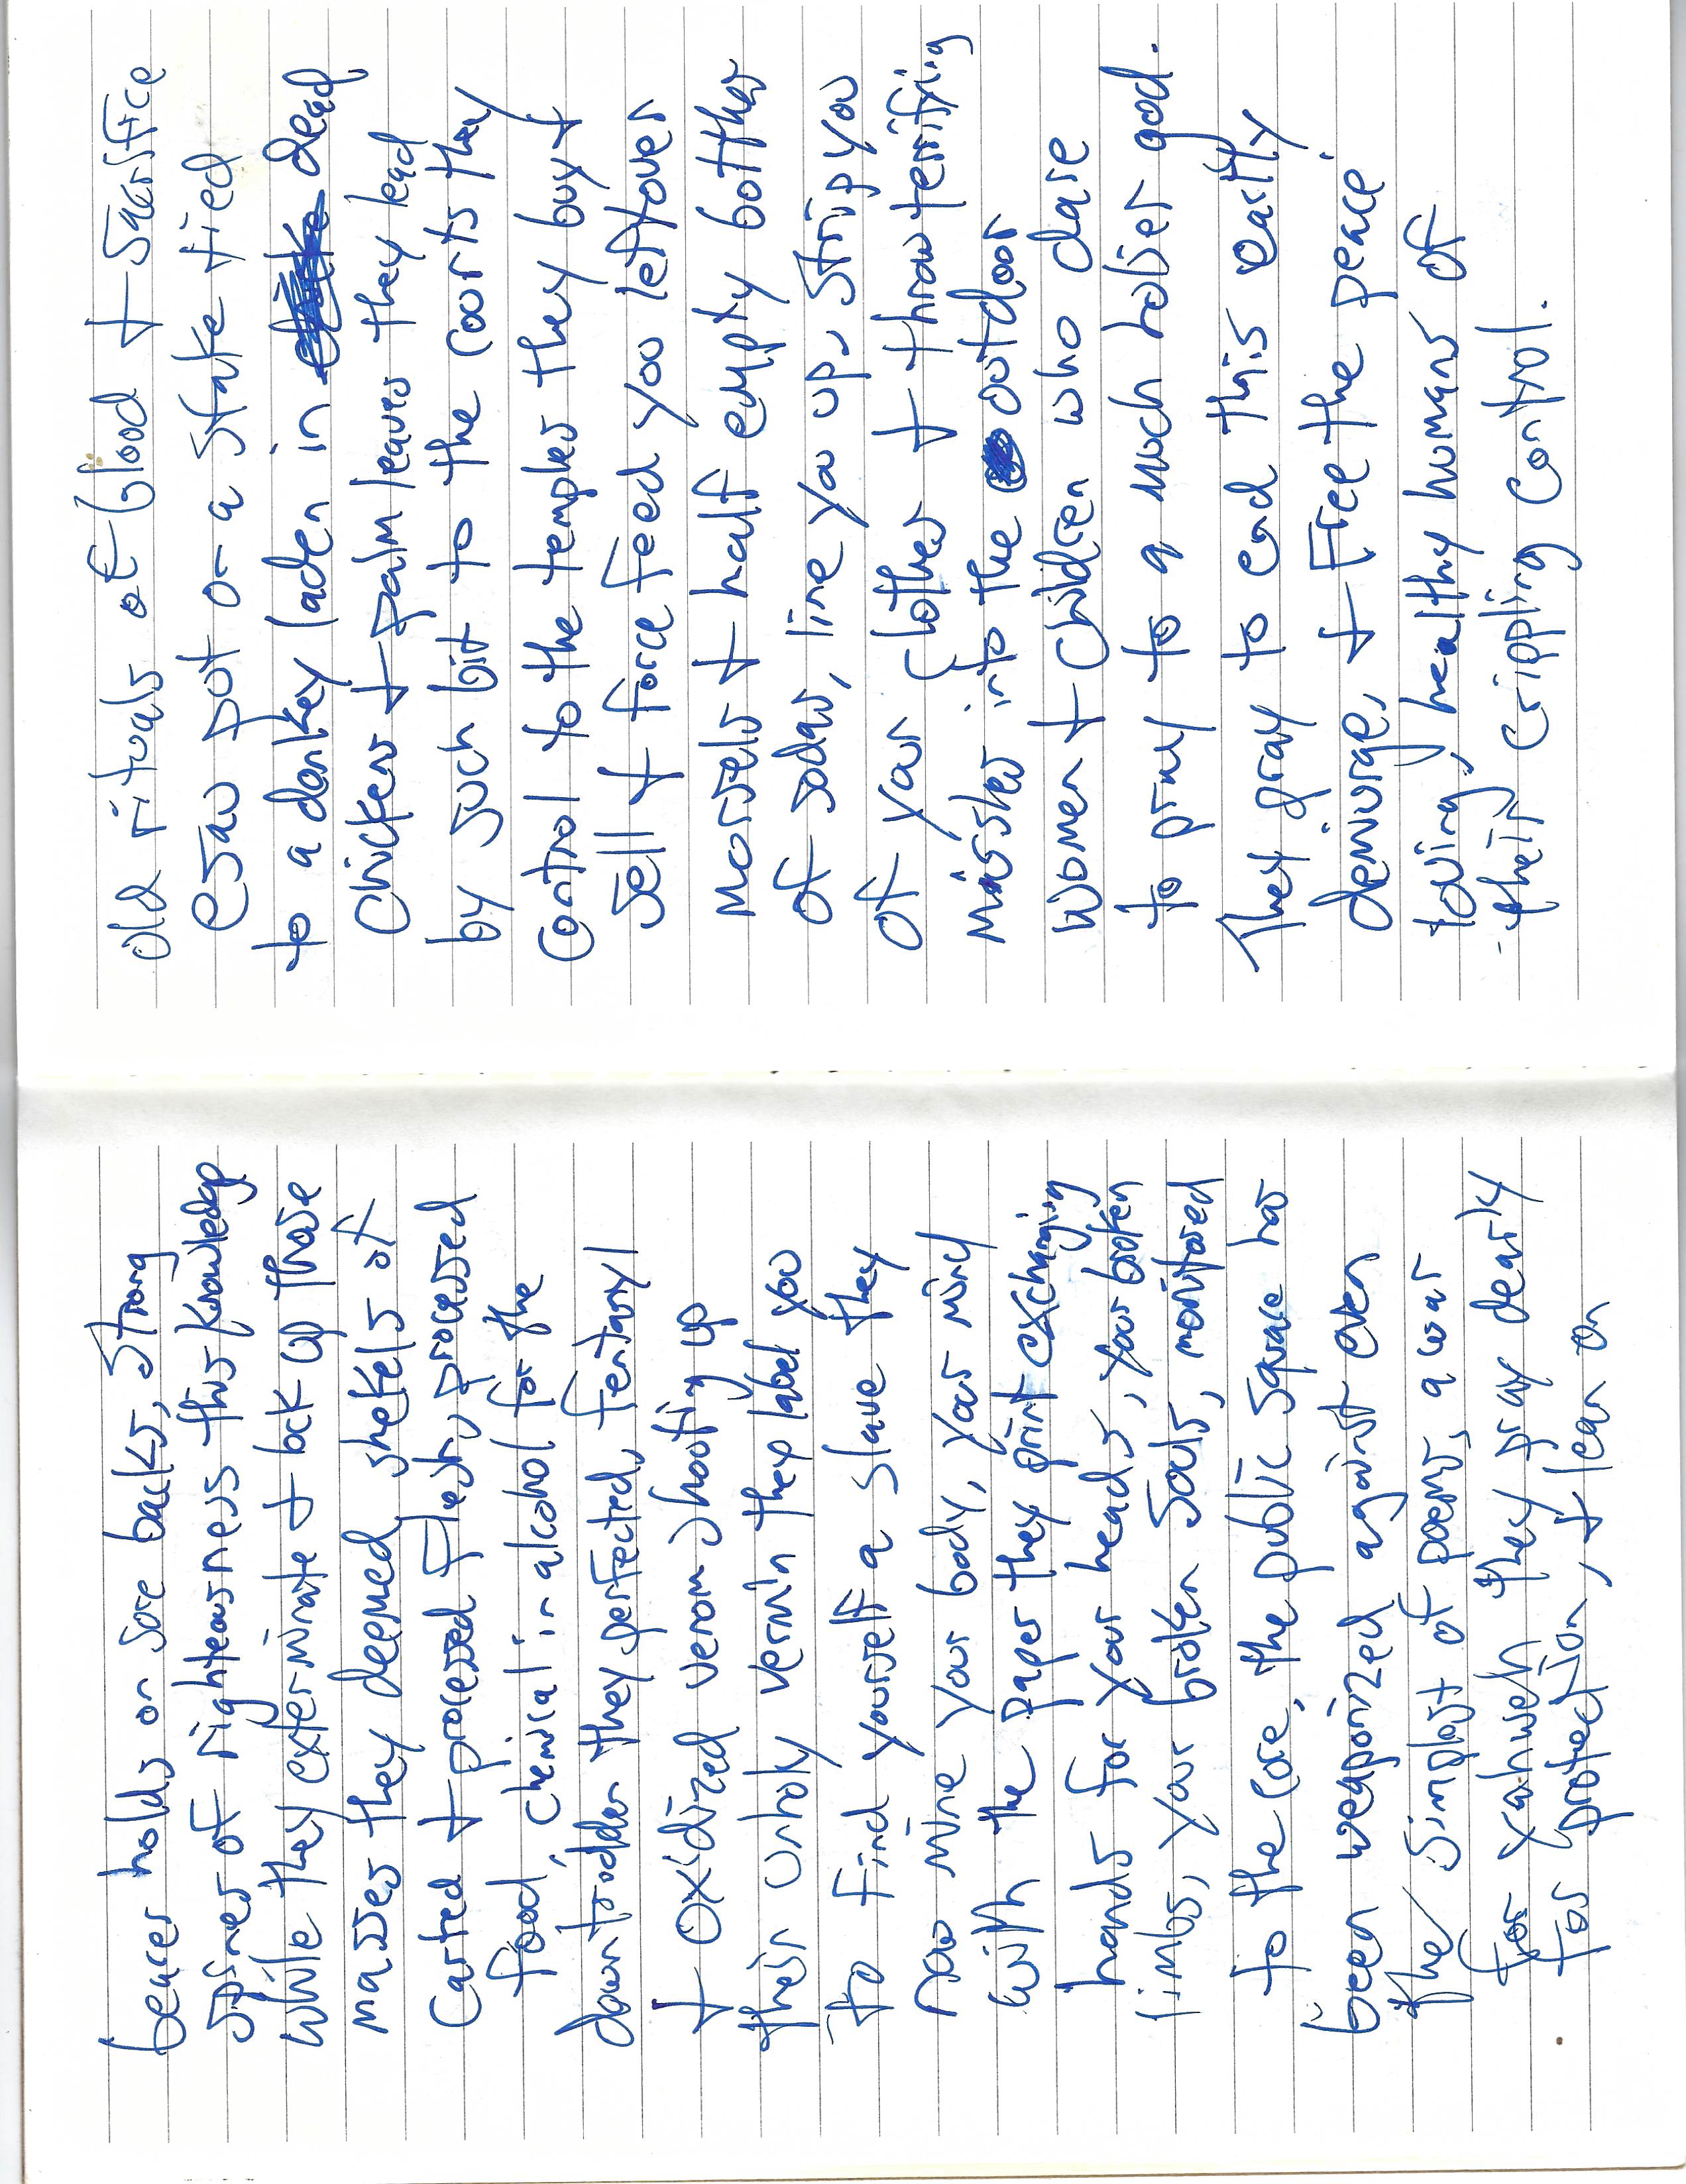 beacer holds on sore backs, strong
spines of righteousness this knowledge
while they exterminate + lock up those
masses they deemed shekels of
carted + processed flesh, processed
food, chemical in alcohol for the
downtrodden they perfected, fentanyl
+ oxidized venom shooting up
their unholy vermin they label you
to find yourself a slave they
now mine your body, your mind
with the paper they print exchanging
hands for your heads, your broken
limbs, your broken souls, monitored
to the core, the public square has
been weaponized against even
the simplest of poems, a war
for yahweh they pray dearly
for protection, + lean on
old rituals of blood + sacrifice
esau put on a stake tied
to a donkey laden in dead
chickens + palm leaves they lead
by such bit to the courts they
control to the temples they buy +
sell + force feed you leftover
morsels + half empty bottles
of sodas, line you up, strip you
of your clothes + throw terrifying
missles into the outdoor
women + children who dare
to pray to a much holier god.
They pray to end this earthly
demiurge, + free the peace
loving, healthy humans of
their crippling control.